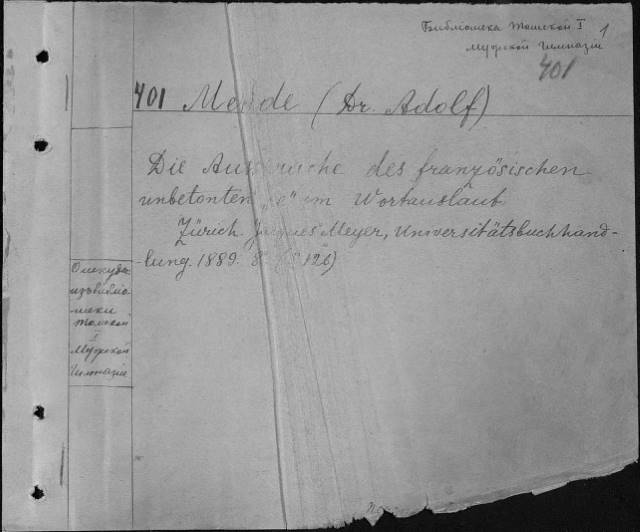 Библіотека Томской I
Мужской Гимназіи
1
401
401 Mende (Dr. Adolf)
Die Aussprache des französischen
unbetonten „e" im Wortauslaut
Zürich. Jaques Meyer, Universitätsbuchhand-
-lung. 1889. 8° (S. 126)
Откуда
изъ библіо-
теки
Томской
I
Мужской
Гимназіи